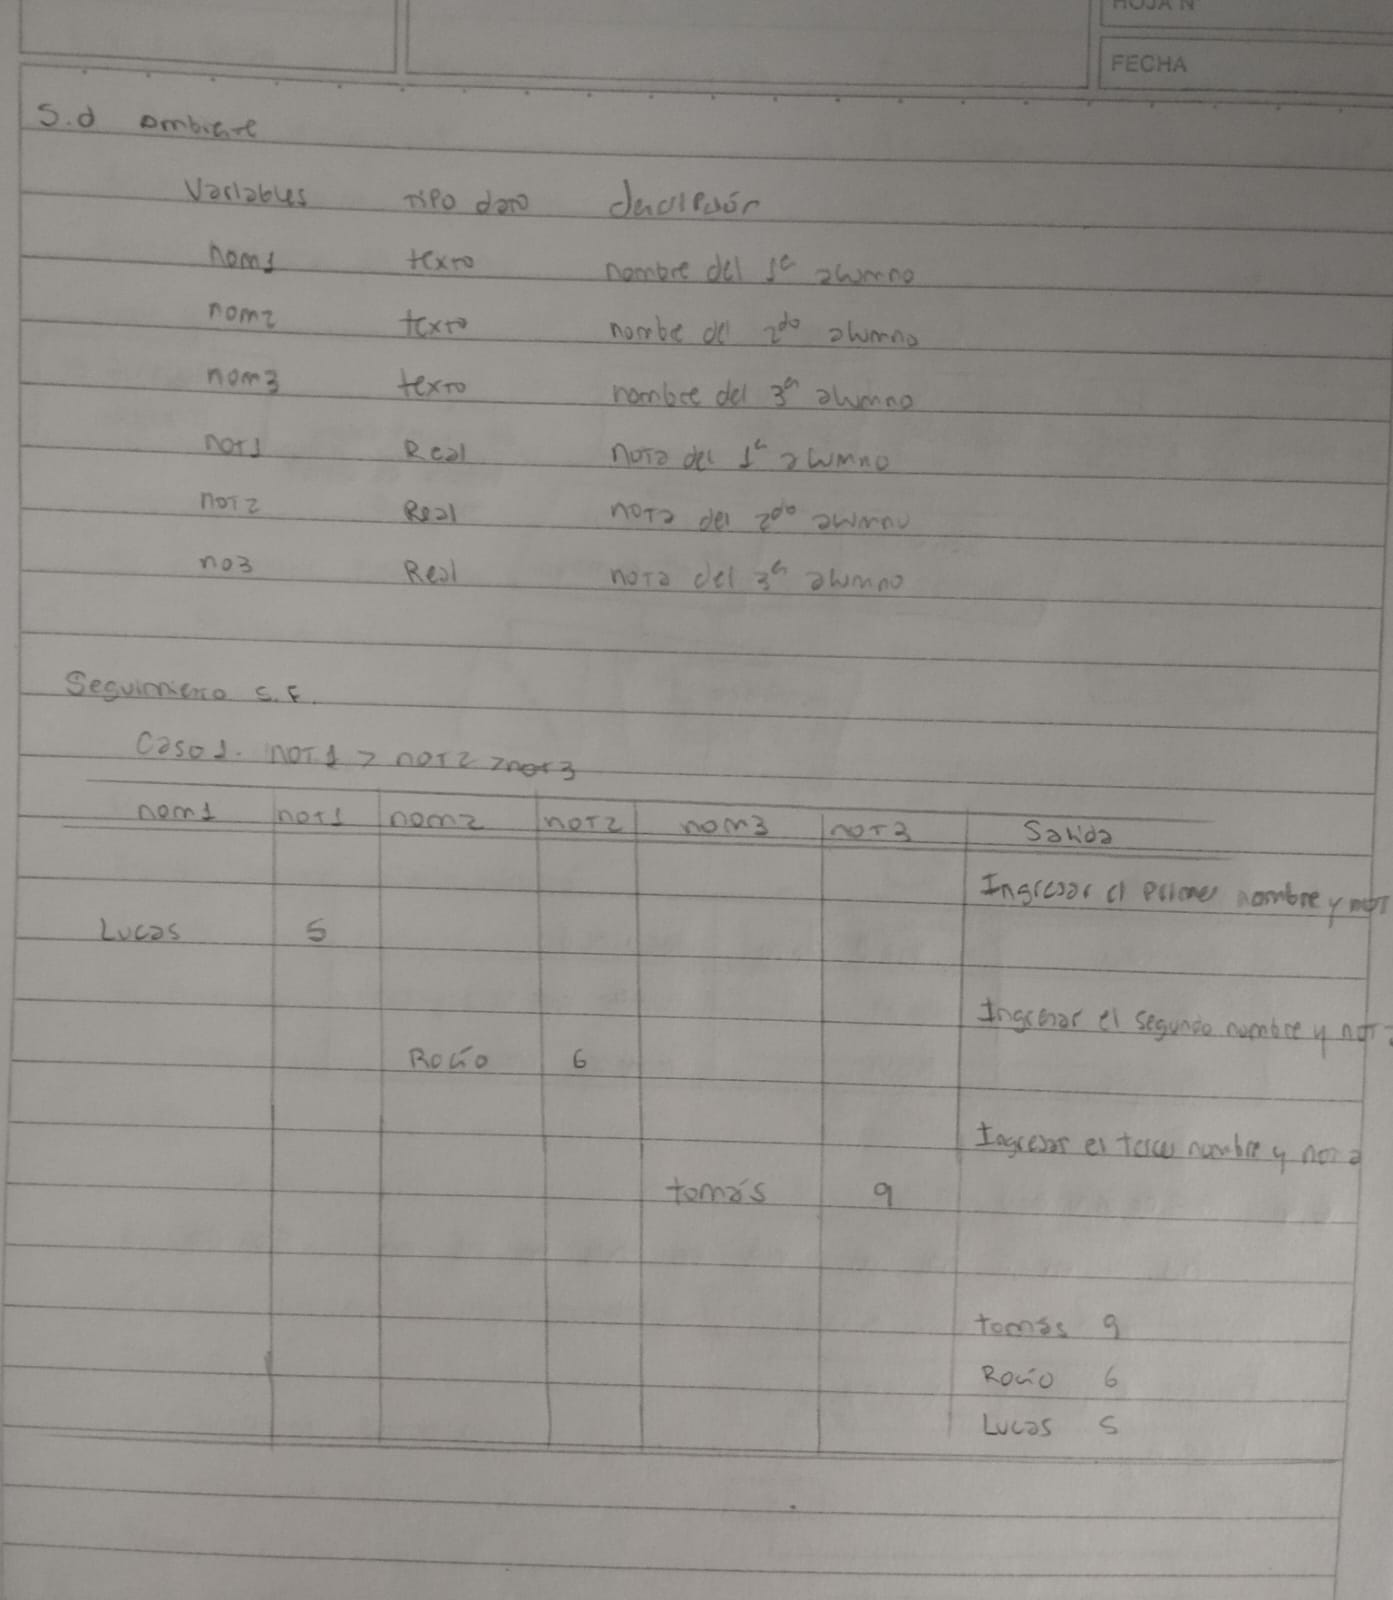 HOJA N
FECHA
5.d ambiente
Variables tipo dato descripción
nom1 texto nombre del 1er alumno
nom2 texto nombre del 2do alumno
nom3 texto nombre del 3er alumno
not1 Real nota del 1er alumno
not2 Real nota del 2do alumno
no3 Real nota del 3er alumno
Seguimiento 5.E.
Caso 1. not1 > not2 > not3
nom1 not1 nom2 not2 nom3 not3 Salida
Ingresar el primer nombre y not
Lucas 5
Ingresar el segundo nombre y not
Rocío 6
Ingresar el tercer nombre y nota
tomás 9
tomás 9
Rocío 6
Lucas 5